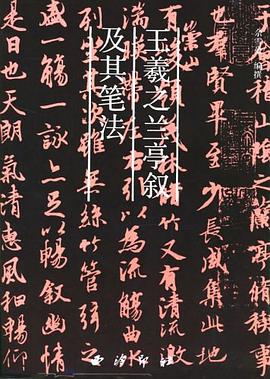 王羲之兰亭叙
及其笔法
编撰
于會稽山陰之蘭亭脩稧事
也群賢畢至少長咸集此地
有崇山峻領茂林脩竹又有清流激
湍暎帶左右引以為流觴曲水
列坐其次雖無絲竹管弦之
盛一觴一詠亦足以暢敘幽情
是日也天朗氣清惠風和暢仰
西泠印社